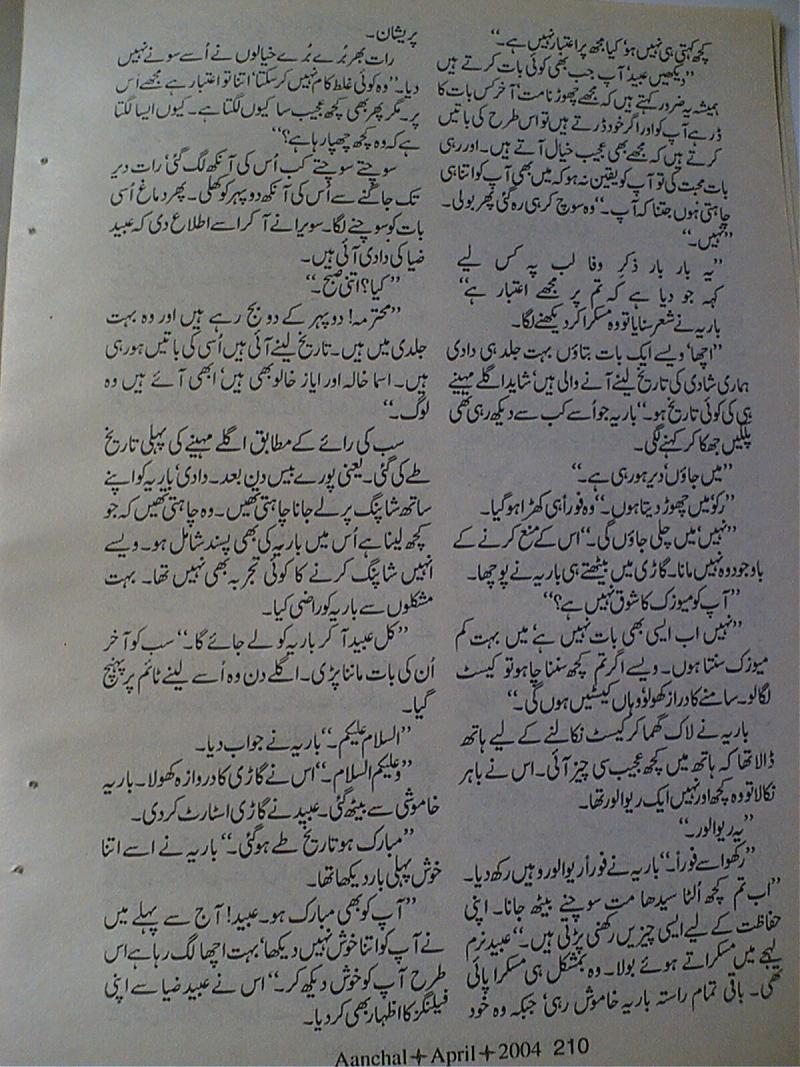 کچھ کہتی ہی نہیں ہو‘ کیا مجھ پر اعتبار نہیں ہے۔‘‘
’’دیکھیں عبید‘ آپ جب بھی کوئی بات کرتے ہیں
ہمیشہ یہ ضرور کہتے ہیں کہ مجھے چھوڑنا مت‘ آخر کس بات کا
ڈر ہے آپ کو اور اگر خود ڈرتے ہیں تو اس طرح کی باتیں
کرتے ہیں کہ مجھے بھی عجیب خیال آتے ہیں۔ اور رہی
بات محبت کی تو آپ کو یقین نہ ہو کہ میں بھی آپ کو اتنا ہی
چاہتی ہوں جتنا کہ آپ۔‘‘ وہ سوچ کر ہی رہ گئی پھر بولی۔
’’نہیں۔‘‘
’’یہ بار بار ذکر وفا لب پہ کس لیے
کہہ جو دیا ہے کہ تم پر مجھے اعتبار ہے‘‘
باریہ نے شعر سنایا تو وہ مسکرا کر دیکھنے لگا۔
’’اچھا‘ ویسے ایک بات بتاؤں بہت جلد ہی دادی
ہماری شادی کی تاریخ لینے آنے والی ہیں‘ شاید اگلے مہینے
ہی کی کوئی تاریخ ہو۔‘‘ باریہ جو اُسے کب سے دیکھ رہی تھی
پلکیں جھکا کر کہنے لگی۔
’’میں جاؤں‘ دیر ہو رہی ہے۔‘‘
’’رکو‘ میں چھوڑ دیتا ہوں۔‘‘ وہ فوراً ہی کھڑا ہو گیا۔
’’نہیں‘ میں چلی جاؤں گی۔‘‘ اس کے منع کرنے کے
باوجود وہ نہیں مانا۔ گاڑی میں بیٹھتے ہی باریہ نے پوچھا۔
’’آپ کو میوزک کا شوق نہیں ہے؟‘‘
’’نہیں اب ایسی بھی بات نہیں ہے‘ میں بہت کم
میوزک سنتا ہوں۔ ویسے اگر تم کچھ سننا چاہو تو کیسٹ
لگا لو۔ سامنے کا دراز کھولو‘ وہاں کیسٹیں ہوں گی۔‘‘
باریہ نے لاک گھما کر کیسٹ نکالنے کے لیے ہاتھ
ڈالا تھا کہ ہاتھ میں کچھ عجیب سی چیز آئی۔ اس نے باہر
نکالا تو وہ کچھ اور نہیں ایک ریوالور تھا۔
’’یہ ریوالور۔‘‘
’’رکھو اسے فوراً۔‘‘ باریہ نے فوراً ریوالور وہیں رکھ دیا۔
’’اب تم کچھ اُلٹا سیدھا مت سوچنے بیٹھ جانا۔ اپنی
حفاظت کے لیے ایسی چیزیں رکھنی پڑتی ہیں۔‘‘ عبید نرم
لہجے میں مسکراتے ہوئے بولا۔ وہ بمشکل ہی مسکرا پائی
تھی۔ باقی تمام راستہ باریہ خاموش رہی‘ جبکہ وہ خود
پریشان۔
رات بھر بُرے بُرے خیالوں نے اُسے سونے نہیں
دیا۔ ’’وہ کوئی غلط کام نہیں کر سکتا‘ اتنا تو اعتبار ہے مجھے اُس
پر۔ مگر پھر بھی کچھ عجیب سا کیوں لگتا ہے۔ کیوں ایسا لگتا
ہے کہ وہ کچھ چھپا رہا ہے؟‘‘
سوچتے سوچتے کب اُس کی آنکھ لگ گئی‘ رات دیر
تک جاگنے سے اُس کی آنکھ دوپہر کو کھلی۔ پھر دماغ اُسی
بات کو سوچنے لگا۔ سویرا نے آ کر اسے اطلاع دی کہ عبید
ضیا کی دادی آئی ہیں۔
’’کیا؟ اتنی صبح۔‘‘
’’محترمہ! دوپہر کے دو بج رہے ہیں اور وہ بہت
جلدی میں ہیں۔ تاریخ لینے آئی ہیں اُسی کی باتیں ہو رہی
ہیں۔ اسما خالہ اور ایاز خالو بھی ہیں‘ ابھی آئے ہیں وہ
لوگ۔‘‘
سب کی رائے کے مطابق اگلے مہینے کی پہلی تاریخ
طے کی گئی۔ یعنی پورے بیس دن بعد۔ دادی‘ باریہ کو اپنے
ساتھ شاپنگ پر لے جانا چاہتی تھیں۔ وہ چاہتی تھیں کہ جو
کچھ لینا ہے اُس میں باریہ کی بھی پسند شامل ہو۔ ویسے
انہیں شاپنگ کرنے کا کوئی تجربہ بھی نہیں تھا۔ بہت
مشکلوں سے باریہ کو راضی کیا۔
’’کل عبید آ کر باریہ کو لے جائے گا۔‘‘ سب کو آخر
اُن کی بات ماننا پڑی۔ اگلے دن وہ اُسے لینے ٹائم پر پہنچ
گیا۔
’’السلام علیکم۔‘‘ باریہ نے جواب دیا۔
’’وعلیکم السلام۔‘‘ اس نے گاڑی کا دروازہ کھولا۔ باریہ
خاموشی سے بیٹھ گئی۔ عبید نے گاڑی اسٹارٹ کر دی۔
’’مبارک ہو تاریخ طے ہو گئی۔‘‘ باریہ نے اسے اتنا
خوش پہلی بار دیکھا تھا۔
’’آپ کو بھی مبارک ہو۔ عبید! آج سے پہلے میں
نے آپ کو اتنا خوش نہیں دیکھا‘ بہت اچھا لگ رہا ہے اس
طرح آپ کو خوش دیکھ کر۔‘‘ اس نے عبید ضیا سے اپنی
فیلنگز کا اظہار بھی کر دیا۔
Aanchal+April+2004 210